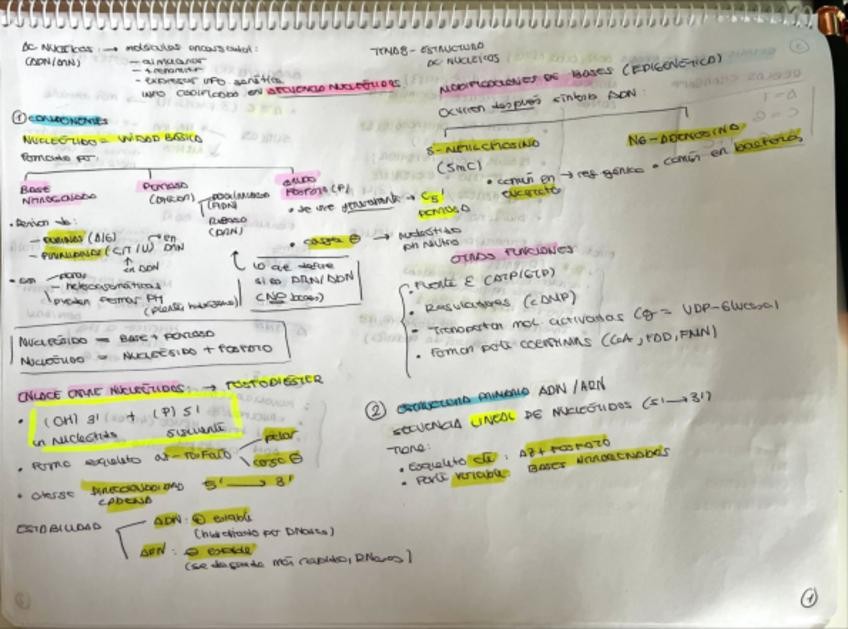 TEMA 8 - ESTRUCTURA
ÁC NUCLEICOS
ÁC NUCLEICOS: → moléculas encargadas:
(ADN/ARN)
- almacenar
- transmitir
- expresar INFO genética
INFO codificada en SECUENCIA NUCLEÓTIDOS
① COMPONENTES
NUCLEÓTIDO = UNIDAD BÁSICA
Formado por:
BASE
NITROGENADA
PENTOSA
(AZÚCAR)
desoxirribosa
(ADN)
RIBOSA
(ARN)
GRUPO
FOSFATO (P)
• se une generalmente → C5'
PENTOSA
• carga ⊖ → nucleótido
pH neutro
• Derivan de:
- PURINAS (A/G)
- PIRIMIDINAS (C/T/U)
en ADN
en ARN
• son
planas
- heterocromáticas
- pueden formar PH
(puentes hidrógeno)
Lo que define
si es ARN/ADN
(NO bases)
NUCLEÓSIDO = BASE + PENTOSA
NUCLEÓTIDO = NUCLEÓSIDO + FOSFATO
ENLACE ENTRE NUCLEÓTIDOS: → FOSFODIÉSTER
• (OH) 3' + (P) 5'
un nucleótido siguiente
• Forma esqueleto az-FOSFATO
polar
carga ⊖
• Otorga DIRECCIONALIDAD 5' → 3'
CADENA
ESTABILIDAD
ADN: ⊕ estable
(hidrolizado por DNasas)
ARN: ⊖ estable
(se degrada más rápido,
MODIFICACIONES DE BASES (EPIGENÉTICA)
Ocurren después síntesis ADN:
5-METILCITOSINA
(5mC)
• común en → reg. génica
eucariota
N6-ADENOSINA
• común en bacterias
OTRAS FUNCIONES
• Fuente E (ATP/GTP)
• Reguladores (cAMP)
• Transportar mol activadas (ej = UDP-Glucosa)
• Forman parte COENZIMAS (CoA, FAD, FMN)
② ESTRUCTURA PRIMARIA ADN/ARN
SECUENCIA LINEAL DE NUCLEÓTIDOS (5' → 3')
TIENE:
• Esqueleto cte: AZ + FOSFATO
• Parte variable: BASES NITROGENADAS
1